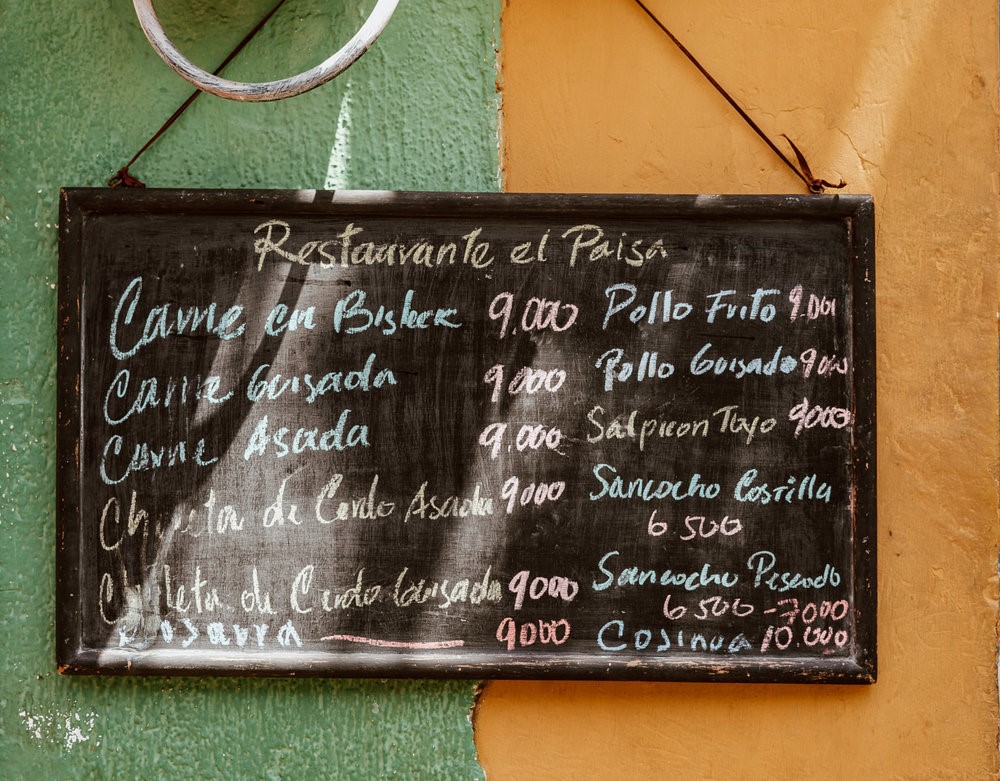 Restaurante el Paisa
Carne en Bisteck 9.000
Carne Guisada 9.000
Carne Asada 9.000
Chuleta de Cerdo Asada 9000
Chuleta de Cerdo Guisada 9000
9000
Pollo Frito 9.000
Pollo Guisado 9000
Salpicon Toyo 9000
Sancocho Costilla
6.500
Sancocho Pescado
6500-7000
10.000